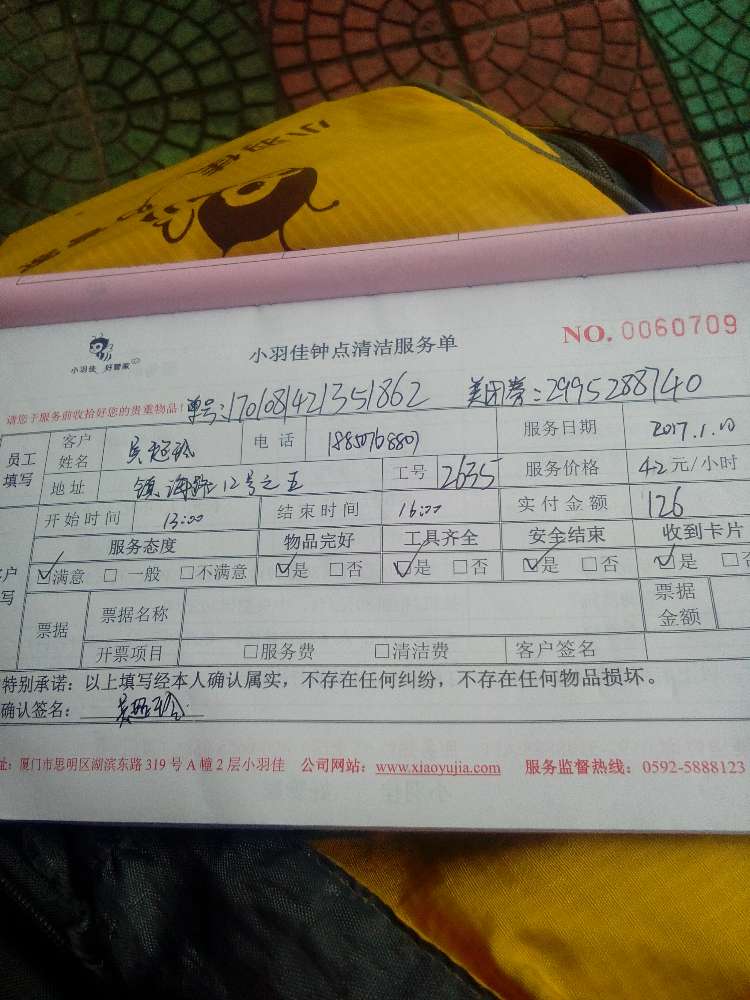 小羽佳
小羽佳 好管家
小羽佳钟点清洁服务单
NO. 0060709
请您于服务前收拾好您的贵重物品!
单号:1701081421351862 美团券:2995288740
员工填写 客户姓名 电话 18850768807 服务日期 2017.1.10
地址 镇海路12号之五 工号 2635 服务价格 42元/小时
开始时间 13:00 结束时间 16:00 实付金额 126
服务态度 物品完好 工具齐全 安全结束 收到卡片
☑满意 □一般 □不满意 ☑是 □否 ☑是 □否 ☑是 □否 ☑是 □否
户写
票据 票据名称 票据金额
开票项目 □服务费 □清洁费 客户签名
特别承诺:以上填写经本人确认属实,不存在任何纠纷,不存在任何物品损坏。
确认签名:
址:厦门市思明区湖滨东路319号A幢2层小羽佳 公司网站:www.xiaoyujia.com 服务监督热线:0592-5888123